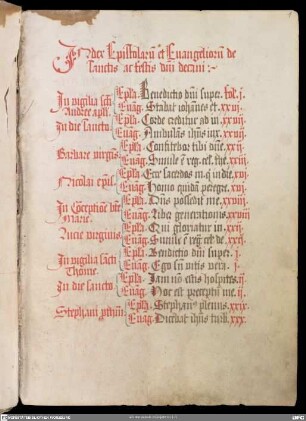 Index Epistolarū et Euangeliorū de
Sanctis ac festis diuī decani :~
In vigilia scī Andree apłi. Epłā. Benedictio dnī super. fol. j.
Euāg. Stabat iohānes et. xxvij.
In die sancto. Epłā. Corde creditur ad iu. xxvij.
Euāg. Ambulās ihūs iux. xxvij.
Barbare virginis. Epłā. Confitebor tibi dnē. xxij.
Euāg. Simile ē reg. cel. the. xxiij.
Nicolai epī. Epłā. Ecce sacerdos m. q in die. xvj.
Euāg. Homo quidā peregre. xvj.
Marie. Epłā. Dnūs possedit me. xxviij.
Euāg. Liber generationis. xxviij
Lucie virginis. Epłā. Qui gloriatur in. xxj.
Euāg. Simile ē regn̄. cel. de. xxij.
In vigilia sancti Thome. Epłā. Benedictio dnī super. j.
Euāg. Ego sū vitis vera. j.
In die sancto. Epłā. Iam nō estis hospites. ij.
Euāg. Hoc est preceptū me. ij.
Stephani Epłā. Stephanus plenus. xxix.
Euāg. Dicebat ihūs turb. xxx.